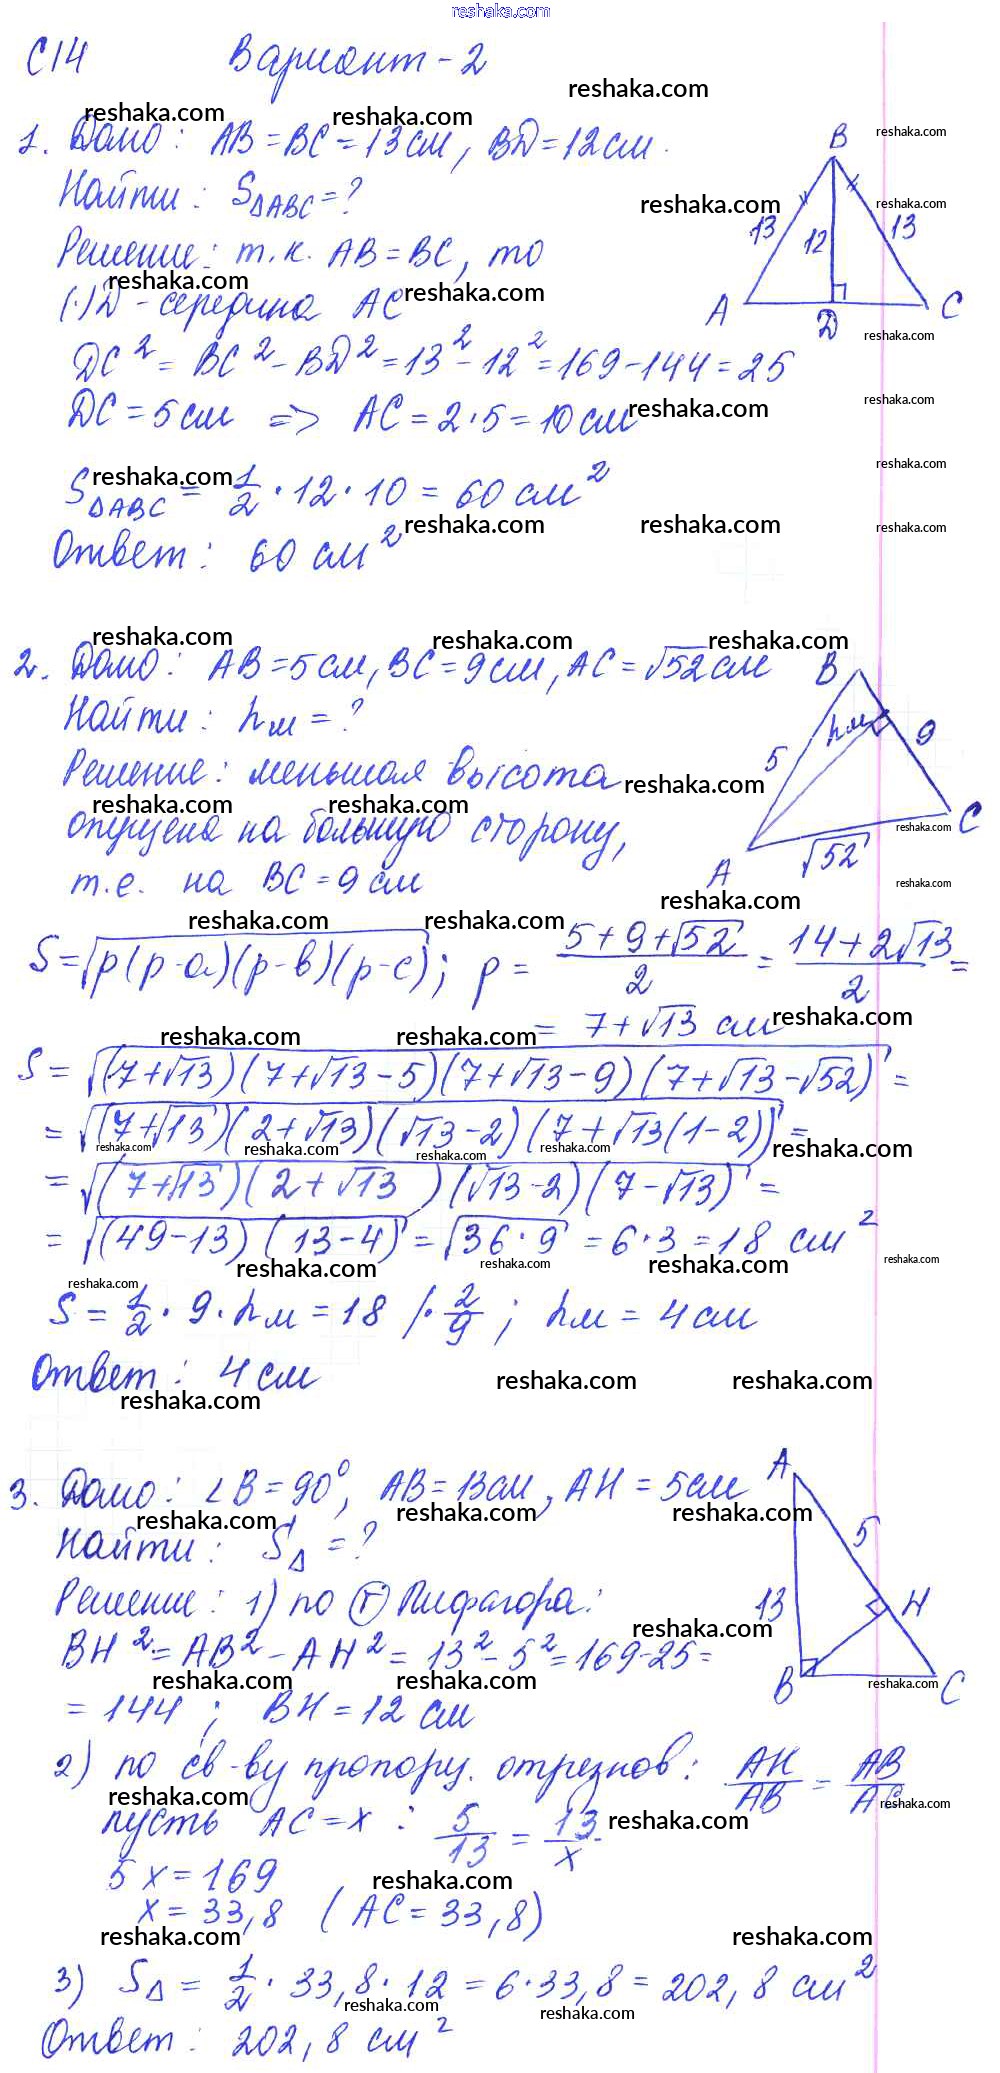 reshaka.com
С14 Вариант-2
1. Дано: AB=BC=13см, BD=12см.
Найти: S△ABC=?
Решение: т.к. AB=BC, то
(·)D-середина AC
DC²=BC²-BD²=13²-12²=169-144=25
DC=5см => AC=2·5=10см
S△ABC=1/2·12·10=60см²
Ответ: 60см²
B
13 12 13
A D C
2. Дано: AB=5см, BC=9см, AC=√52см
Найти: hм=?
Решение: меньшая высота
опущена на большую сторону,
т.е. на BC=9см
B
5 hм 9
A √52 C
S=√p(p-a)(p-в)(p-c); p=(5+9+√52)/2=(14+2√13)/2=
=7+√13 см
S=√(7+√13)(7+√13-5)(7+√13-9)(7+√13-√52)=
=√(7+√13)(2+√13)(√13-2)(7+√13(1-2))=
=√(7+√13)(2+√13)(√13-2)(7-√13)=
=√(49-13)(13-4)=√36·9=6·3=18 см²
S=1/2·9·hм=18 /·2/9; hм=4см
Ответ: 4см
3. Дано: ∠B=90⁰, AB=13см, AH=5см
Найти: S△=?
Решение: 1) по Т Пифагора:
BH²=AB²-AH²=13²-5²=169-25=
=144; BH=12см
A
5
13 H
B C
2) по св-ву пропорц. отрезков: AH/AB=AB/AC
пусть AC=x: 5/13=13/x
5x=169
x=33,8 (AC=33,8)
3) S△=1/2·33,8·12=6·33,8=202,8 см²
Ответ: 202,8 см²